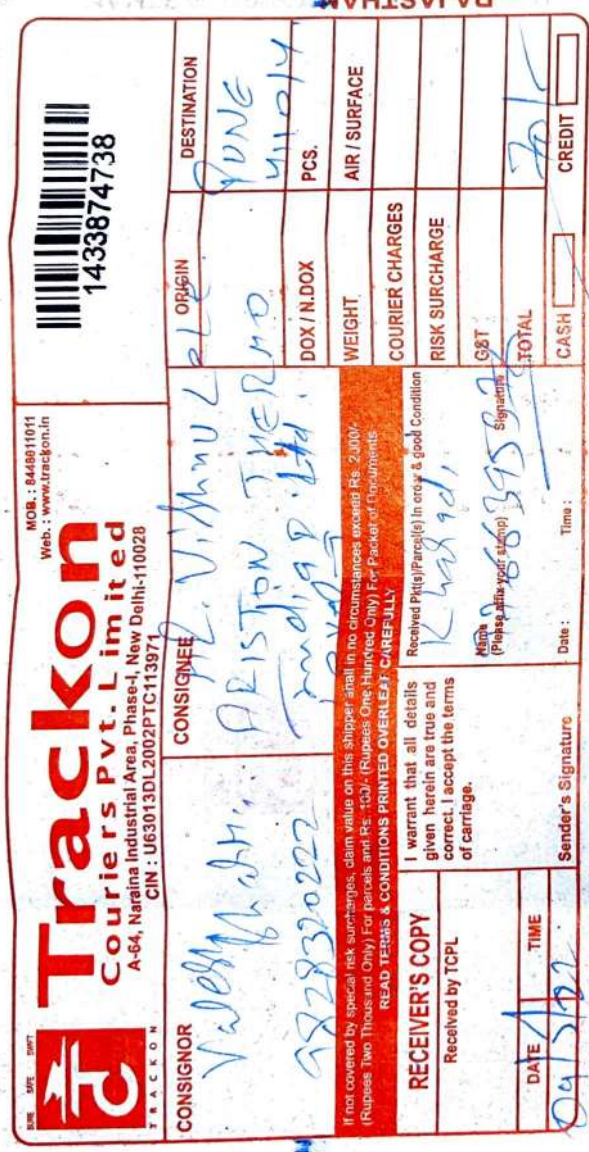 RAJASTHAN
SURE SAFE SWIFT
TRACKON
Trackon
Couriers Pvt. Limited
A-64, Naraina Industrial Area, Phase-I, New Delhi-110028
CIN : U63013DL2002PTC113971
MOB. : 8448011011
Web. : www.trackon.in
1433874738
CONSIGNOR
9828320222
CONSIGNEE
ARISTON THERMO
India P. Ltd.
ORIGIN
DESTINATION
PUNE
411014
DOX / N.DOX
PCS.
WEIGHT
AIR / SURFACE
COURIER CHARGES
RISK SURCHARGE
GST
TOTAL
70/-
CASH
CREDIT
If not covered by special risk surcharges, claim value on this shipper shall in no circumstances exceed Rs. 2000/-
(Rupees Two Thousand Only) For parcels and Rs. 100/- (Rupees One Hundred Only) For Packet of Documents
READ TERMS & CONDITIONS PRINTED OVERLEAF CAREFULLY
RECEIVER'S COPY
Received by TCPL
DATE
TIME
I warrant that all details
given herein are true and
correct. I accept the terms
of carriage.
Sender's Signature
Received Pkt(s)/Parcel(s) In order & good Condition
Name
Signature
(Please affix your stamp)
Date :
Time :